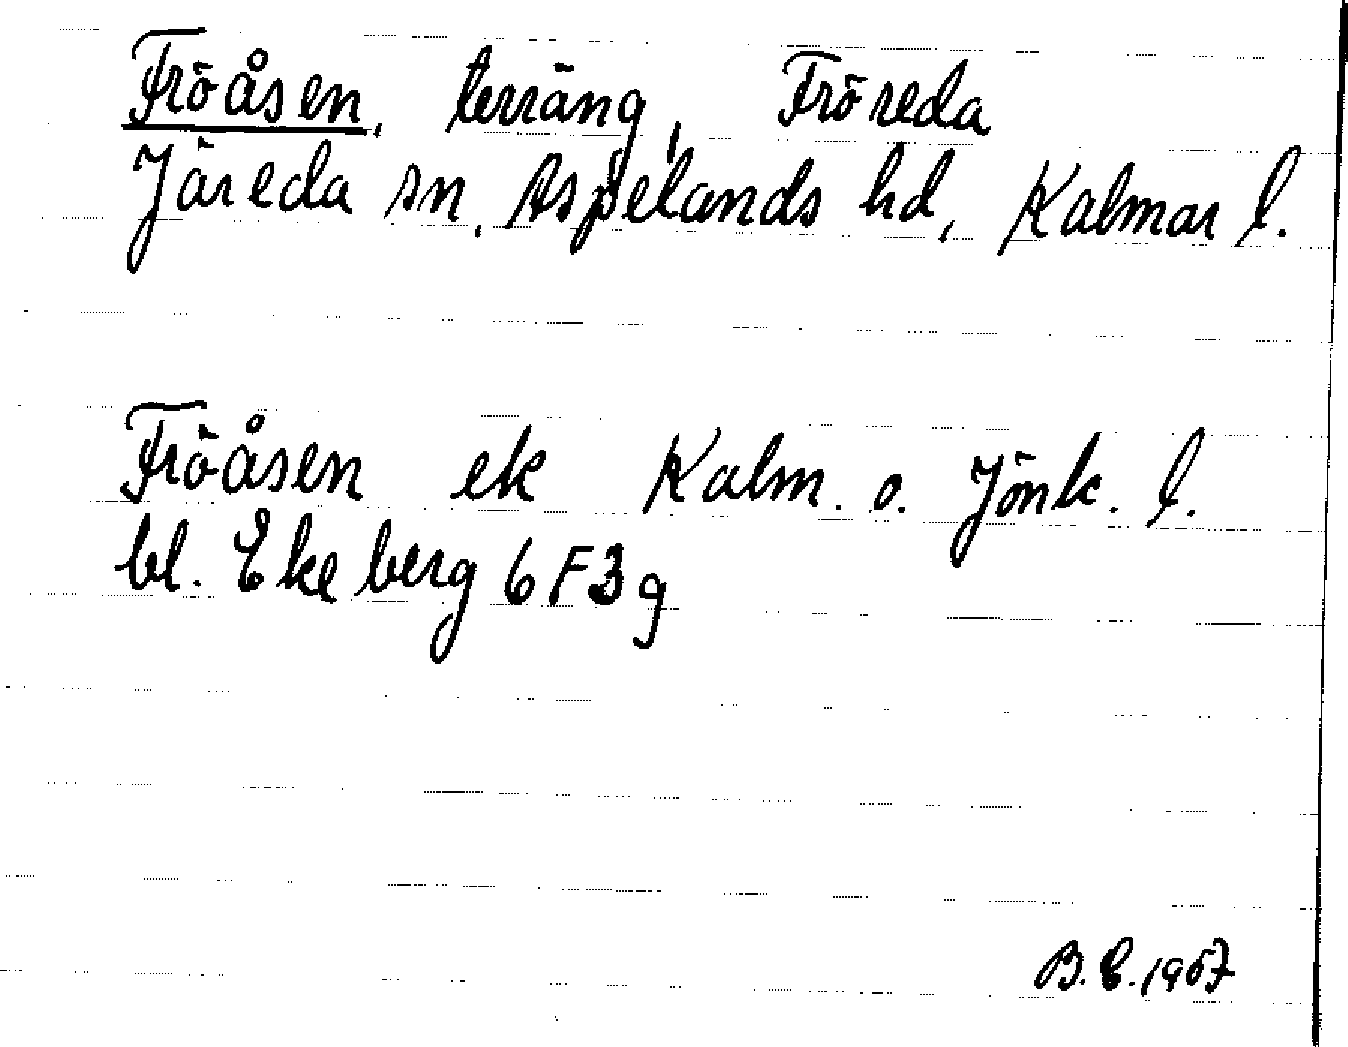 Fröåsen, terräng, Fröreda
Järeda sn, Aspelands hd, Kalmar l.
Fröåsen ek Kalm. o. Jönk. l.
bl. Ekeberg 6F3g
B.E. 1967